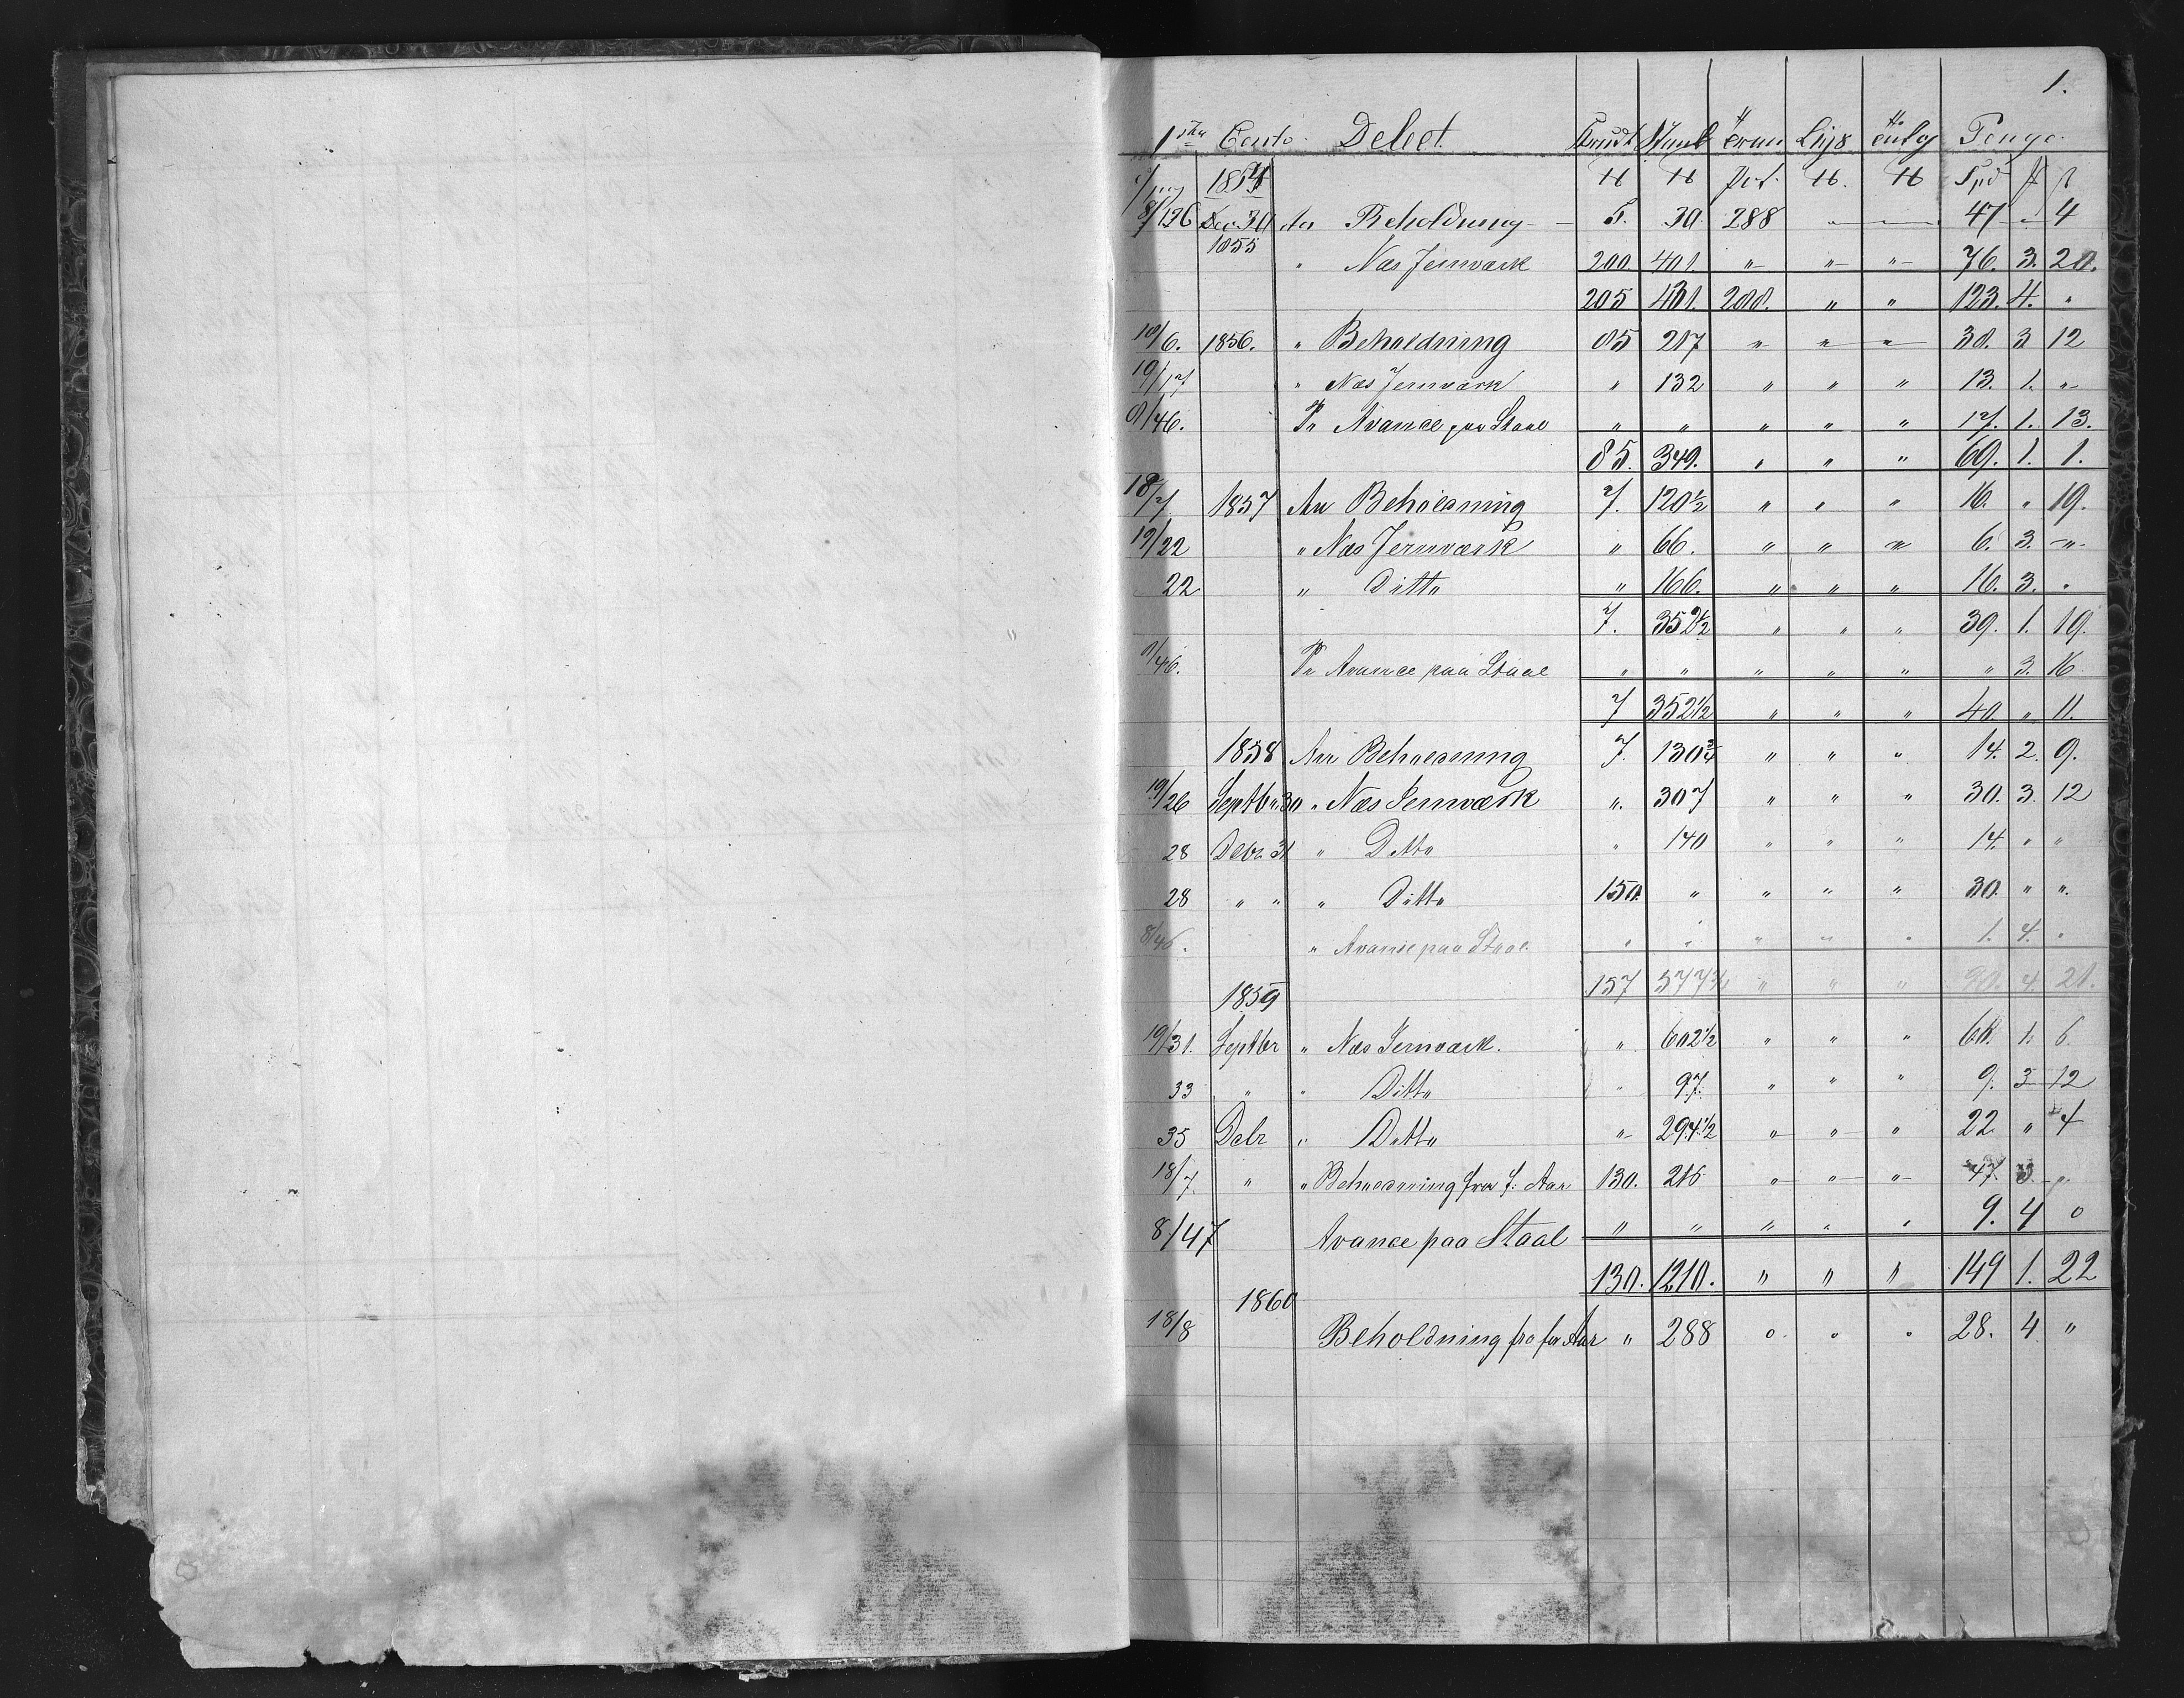 1.
1ste Conto. Debet. Krudt Staal Tran Lys Penge
1854 ℔ ℔ Pot. ℔. ℔ Spd
8/126 Dec 30 An Beholdning 5. 30 288 " " 47 " 4
1855
" Næs Jernværk 200. 401. " " " 76. 3. 20.
205 431. 288. " " 123. 4. "
18/6. 1856. " Beholdning 85 217 " " " 38. 3 12
19/17 " Næs Jernværk " 132 " " " 13. 1. "
8/46. Pr Avance paa Staal " " " " " 17. 1. 13.
85. 349. " " " 69. 1. 1.
18/7 1857 An Beholdning 7. 120½ " " " 16. " 19.
19/22 " Næs Jernværk " 66. " " " 6. 3. "
22 " Ditto " 166. " " " 16. 3. "
7. 352½ " " " 39. 1. 19.
8/46. Pr Avance paa Staal " " " " " " 3. 16
7 352½ " " " 40. " 11.
1858 An Beholdning 7. 130¾ " " " 14. 2. 9.
19/26 Septbr. 30 " Næs Jernværk " 307 " " " 30. 3. 12
28 Debr 31 " Ditto " 140 " " " 14. " "
28 " " " Ditto 150. " " " " 30. " "
8/46. " Avance paa Staal " " " " " 1. 4. "
157 577¾ " " " 90. 4. 21.
1859
19/31. Septbr " Næs Jernværk. " 602½ " " " 60. 1. 6.
33 " " Ditto " 97. " " " 9. 3 12
35 Debr " Ditto " 294½ " " " 22 " 4
18/7. " " Beholdning fra f. Aar 130. 216 " " " 47. 3. "
8/47 Avance paa Staal " " " " " 9. 4 "
130. 1210. " " " 149 1. 22
1860
18/8 Beholdning fra for Aar " 288 " " " 28. 4 "